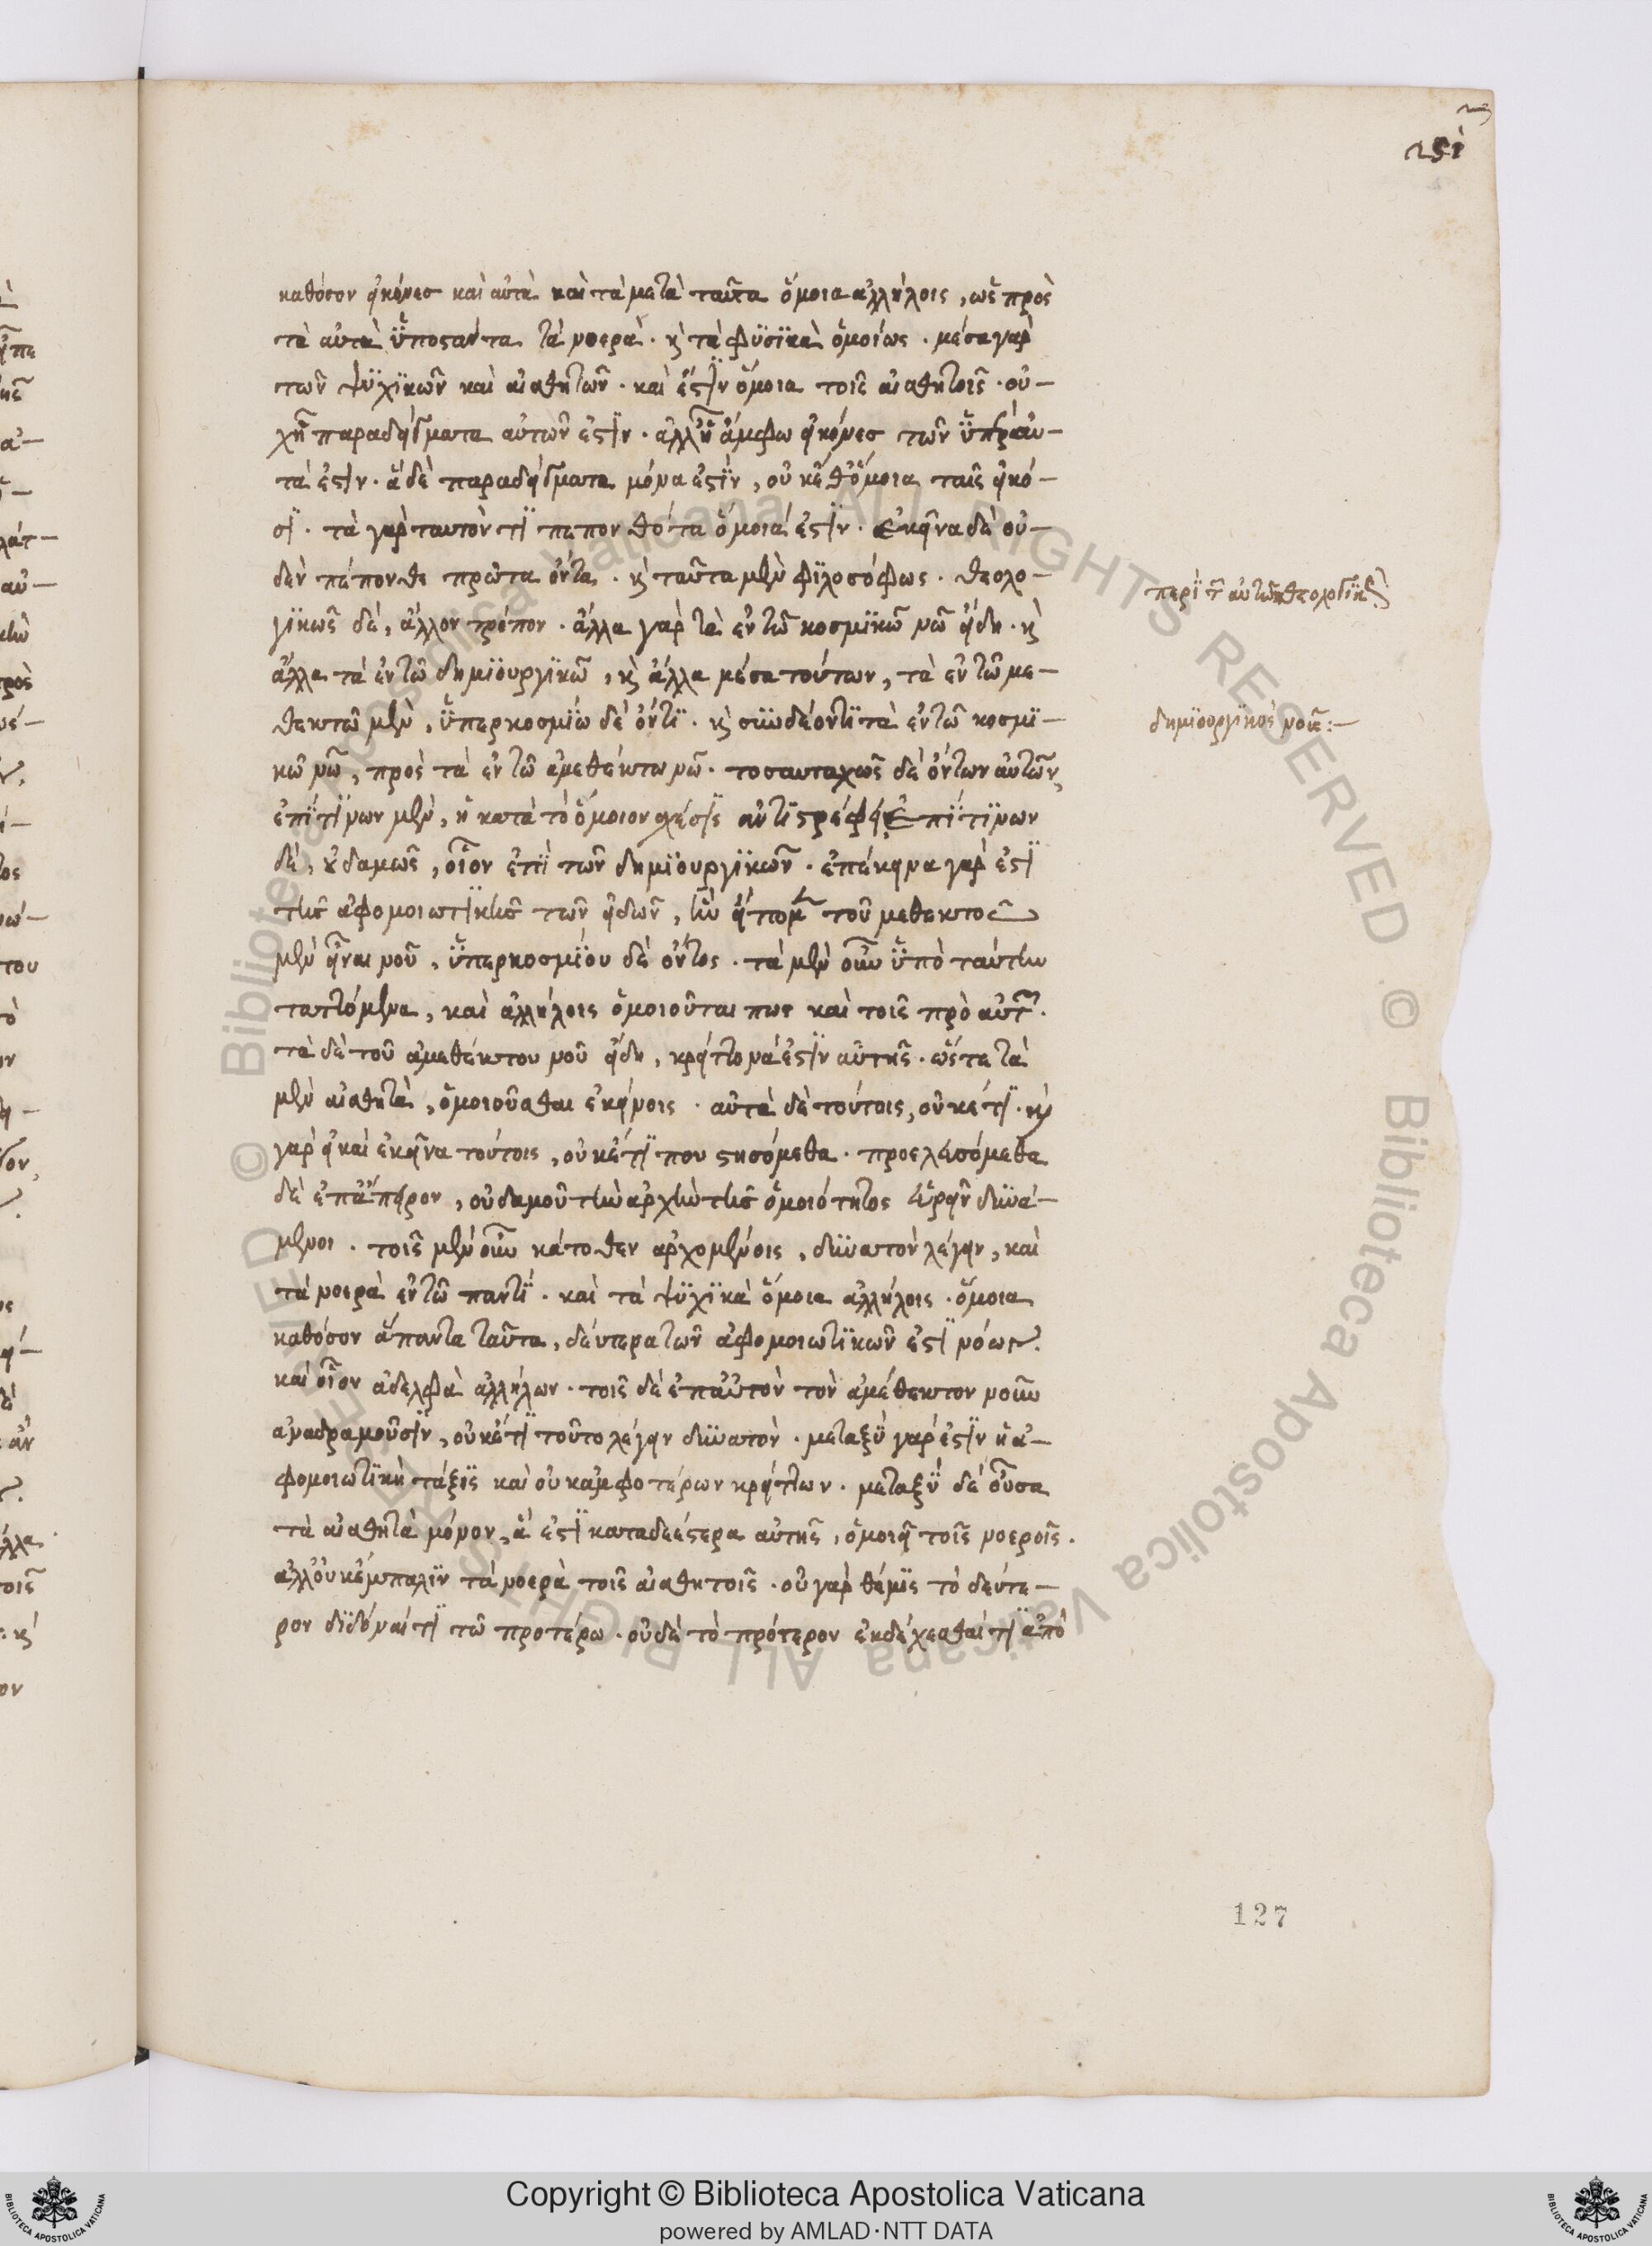 ςι
καθόσον εἰκόνες καὶ αὐτὰ καὶ τὰ μετὰ ταῦτα ὅμοια ἀλλήλοις, ὡς πρὸς
τὰ αὐτὰ ὑποστάντα τὰ νοερά. καὶ τὰ φυσικὰ ὁμοίως. μέσα γὰρ
τῶν ψυχικῶν καὶ αἰσθητῶν. καὶ ἔστιν ὅμοια τοῖς αἰσθητοῖς. οὐ-
χ ᾗ παραδείγματα αὐτῶν ἐστιν. ἀλλ' ᾗ ἄμφω εἰκόνες τῶν ὑπὲρ αὐ-
τά ἐστιν. ἃ δὲ παραδείγματα μόνα ἐστὶν, οὐκέθ' ὅμοια ταῖς εἰκό-
σι. τὰ γὰρ ταυτόν τι πεπονθότα ὅμοιά ἐστιν. ἐκεῖνα δὲ οὐ-
δὲν πέπονθε πρῶτα ὄντα. καὶ ταῦτα μὲν φιλοσόφως. θεολο-
γικῶς δὲ, ἄλλον τρόπον. ἄλλα γὰρ τὰ ἐν τῶ κοσμικῶ νῶ εἴδη. καὶ
ἄλλα τὰ ἐν τῶ δημιουργικῶ, καὶ ἄλλα μέσα τούτων, τὰ ἐν τῶ με-
θεκτῶ μὲν, ὑπερκοσμίω δὲ ὄντι. καὶ συνδέοντι τὰ ἐν τῶ κοσμι-
κῶ νῶ, πρὸς τὰ ἐν τῶ ἀμεθέκτω νῶ. τοσαυταχῶς δὲ ὄντων αὐτῶν,
ἐπί τινων μὲν, ἡ κατὰ τὸ ὅμοιον σχέσις ἀντιστρέφει ἐπί τινων
δὲ, οὐδαμῶς, οἷον ἐπὶ τῶν δημιουργικῶν. ἐπέκεινα γάρ ἐστι
τῆς ἀφομοιωτικῆς τῶν εἰδῶν, ἣν εἴπομεν τοῦ μεθεκτοῦ
μὲν εἶναι νοῦ, ὑπερκοσμίου δὲ ὄντος. τὰ μὲν οὖν ὑπὸ ταύτην
ταττόμενα, καὶ ἀλλήλοις ὁμοιοῦταί πως καὶ τοῖς πρὸ αὐτῶν.
τὰ δὲ τοῦ ἀμεθέκτου νοῦ εἴδη, κρείττονά ἐστιν αὐτῆς. ὥστε τὰ
μὲν αἰσθητὰ, ὁμοιοῦσθαι ἐκείνοις. αὐτὰ δὲ τούτοις, οὐκέτι. καὶ
γὰρ εἰ καὶ ἐκεῖνα τούτοις, οὐκέτι που στησόμεθα. προελευσόμεθα
δὲ ἐπ' ἄπειρον, οὐδαμοῦ τὴν ἀρχὴν τῆς ὁμοιότητος εὑρεῖν δυνά-
μενοι. τοῖς μὲν οὖν κάτοθεν ἀρχομένοις, δυνατὸν λέγειν, καὶ
τὰ νοερὰ ἐν τῶ παντί. καὶ τὰ ψυχικὰ ὅμοια ἀλλήλοις. ὅμοια
καθόσον ἅπαντα ταῦτα, δεύτερα τῶν ἀφομοιωτικῶν ἐστι νόων.
καὶ οἷον ἀδελφὰ ἀλλήλων. τοῖς δὲ ἐπ' αὐτὸν τὸν ἀμέθεκτον νοῦν
ἀναδραμοῦσιν, οὐκέτι τοῦτο λέγειν δυνατόν. μεταξὺ γάρ ἐστιν ἡ ἀ-
φομοιωτικὴ τάξις καὶ οὐκ ἀμφοτέρων κρείττων. μεταξὺ δὲ οὖσα
τὰ αἰσθητὰ μόνον, ἅ ἐστι καταδεέστερα αὐτῆς, ὁμοιεῖ τοῖς νοεροῖς.
ἀλλ' οὐκ ἔμπαλιν τὰ νοερὰ τοῖς αἰσθητοῖς. οὐ γὰρ θέμις τὸ δεύτε-
ρον διδόναι τι τῶ προτέρω. οὐδὲ τὸ πρότερον ἐκδέχεσθαί τι ἀπὸ
περὶ τῶν αὐτῶν θεολογικῶς
δημιουργικὸς νοῦς:-
127
Copyright © Biblioteca Apostolica Vaticana
powered by AMLAD·NTT DATA